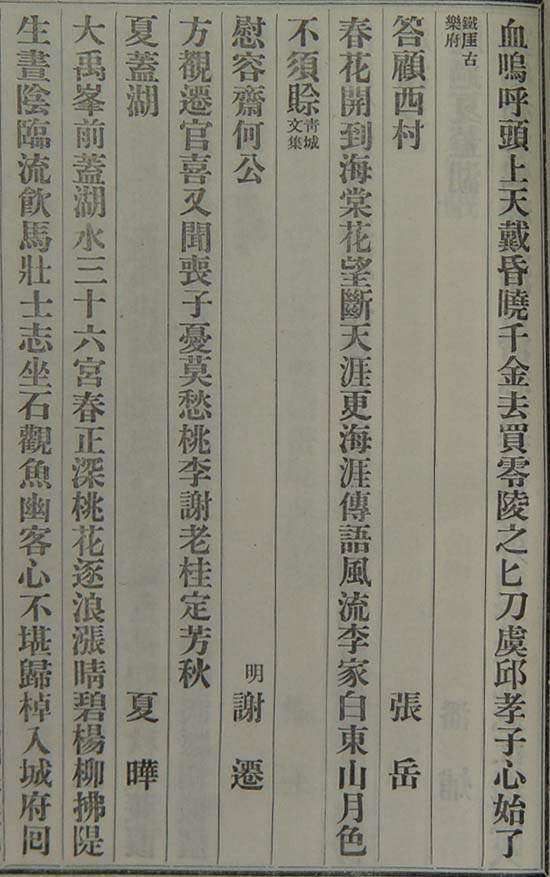 血嗚呼頭上天戴昏曉千金去買零陵之匕刀虞邱孝子心始了
鐵厓古
樂府
答顧西村 張岳
春花開到海棠花望斷天涯更海涯傳語風流李家白東山月色
不須賒靑城
文集
慰容齋何公 明謝遷
方覩遷官喜又聞喪子憂莫愁桃李謝老桂定芳秋
夏蓋湖 夏曄
大禹峯前蓋湖水三十六宮春正深桃花逐浪漲晴碧楊柳拂隄
生晝陰臨流飮馬壯士志坐石觀魚幽客心不堪歸棹入城府囘